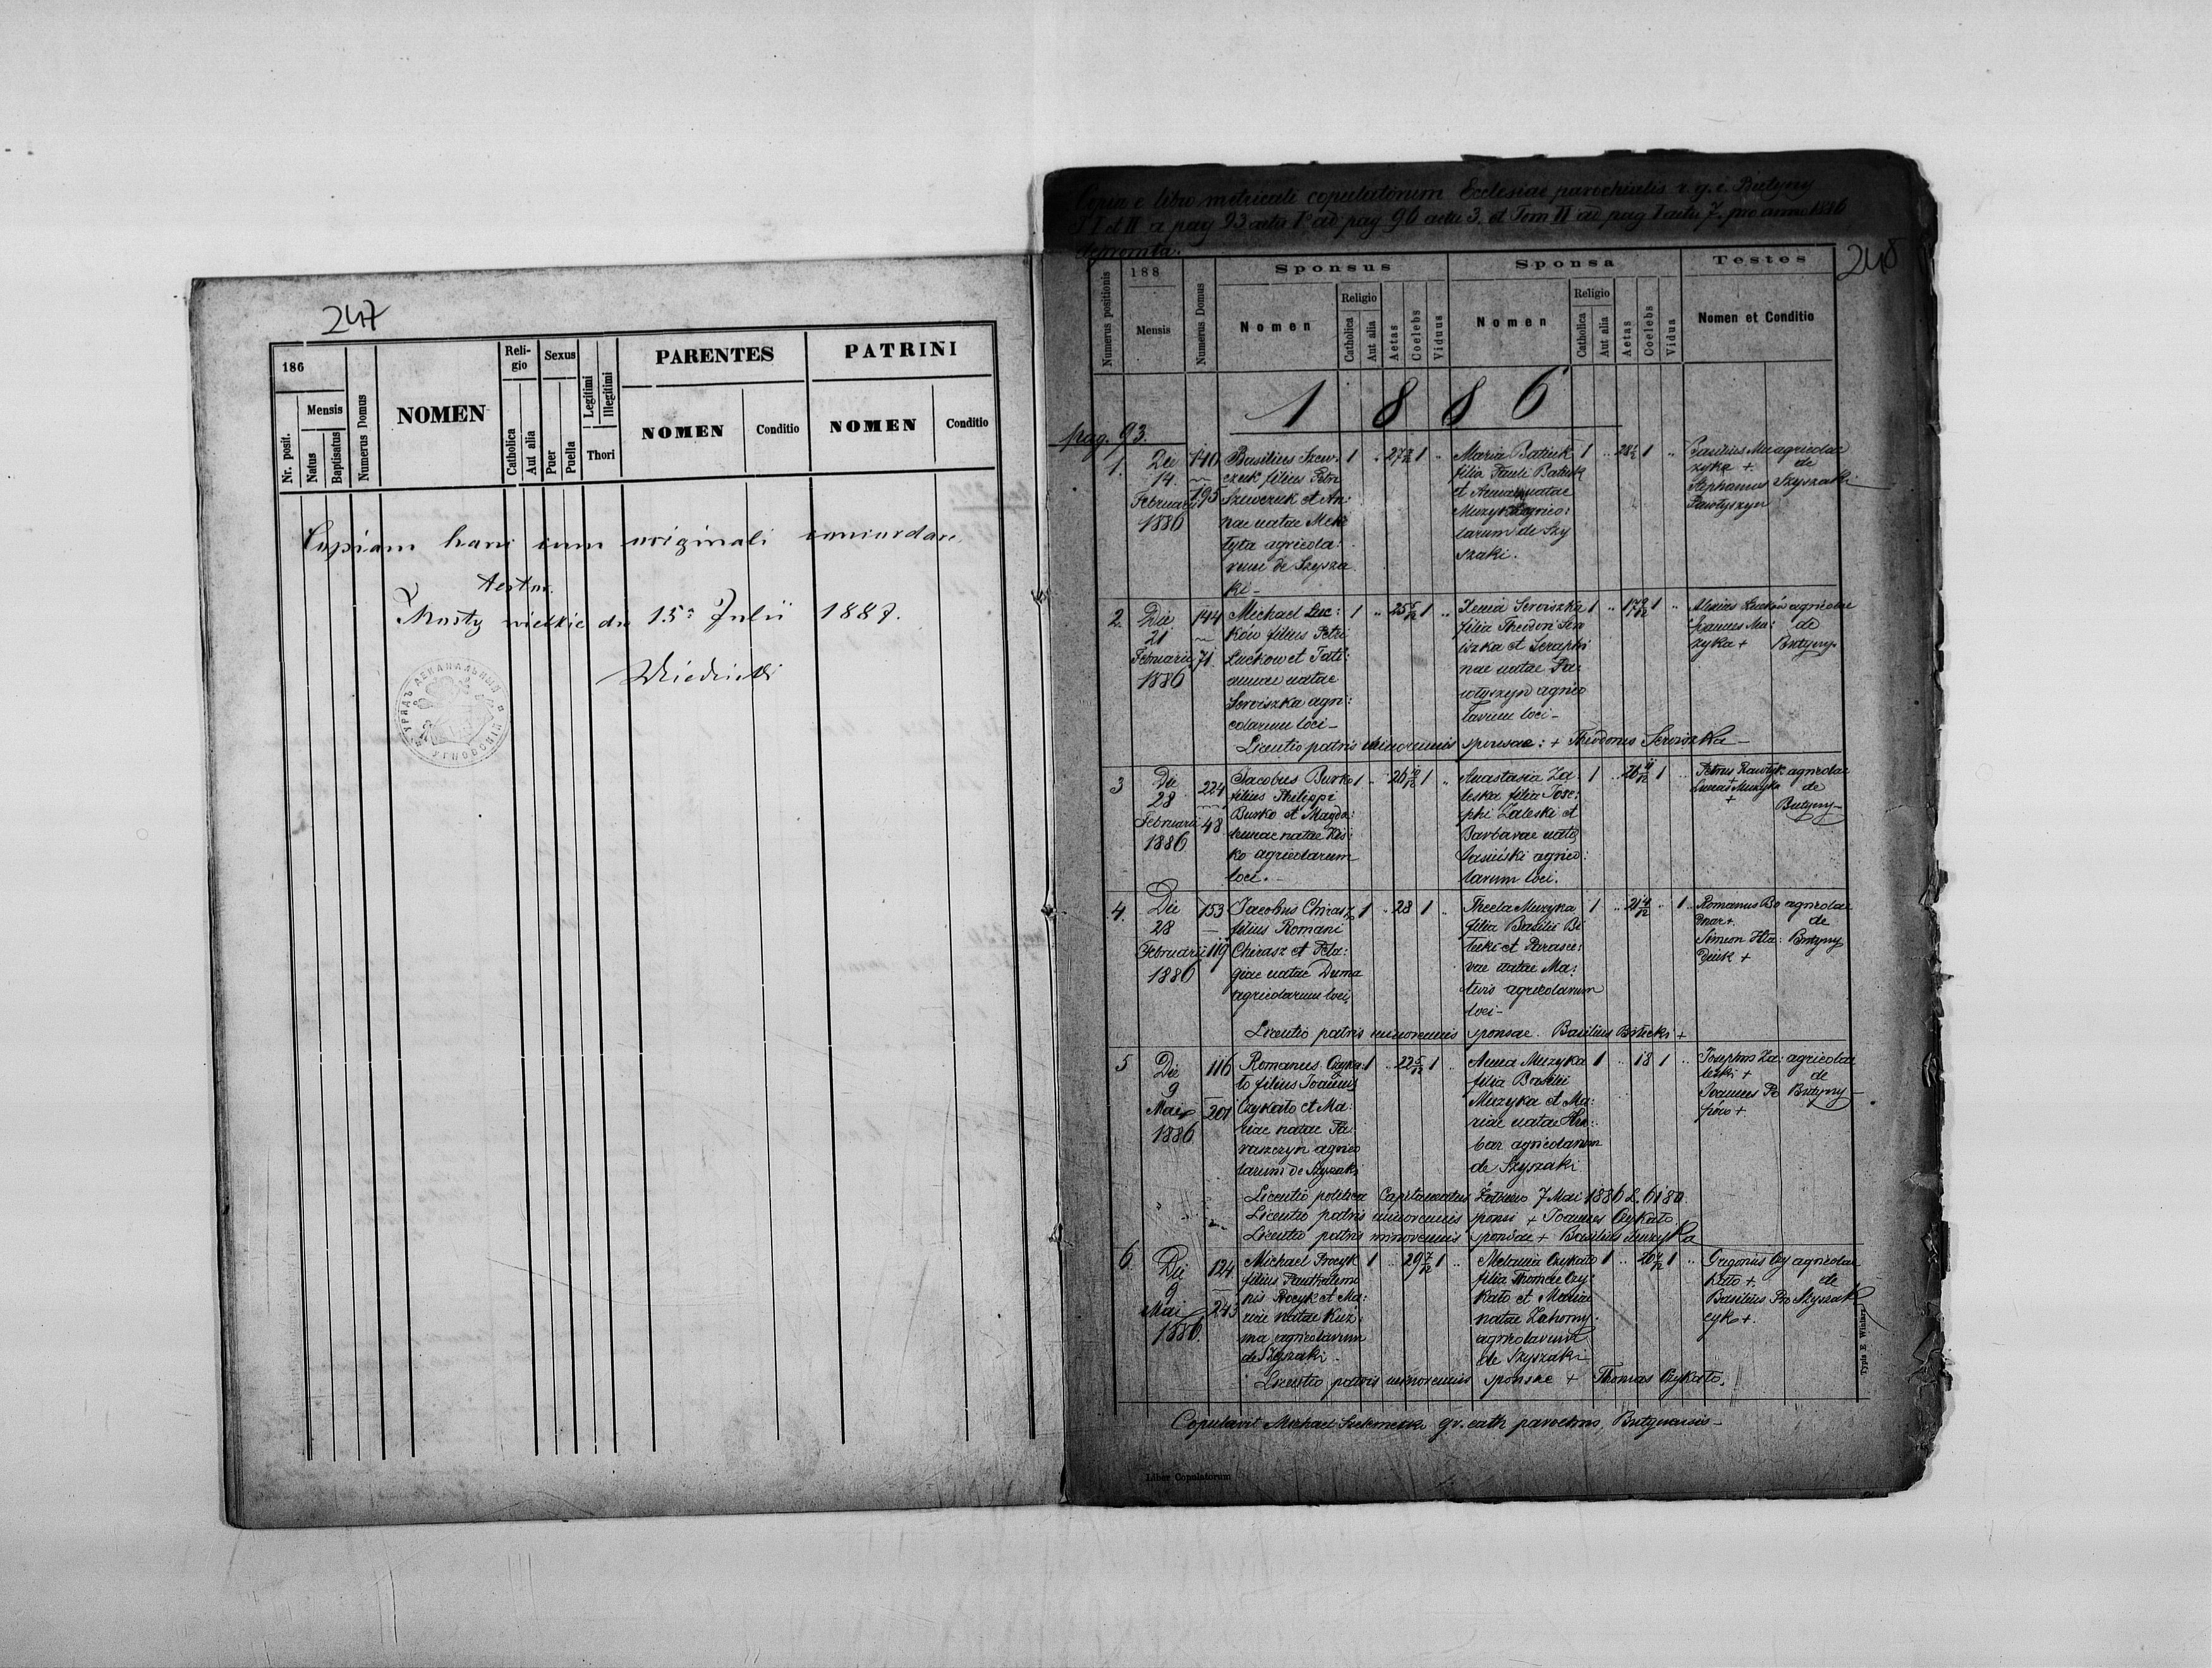 247
186
Mensis
Nr. posit.
Natus
Baptisatus
Numerus Domus
NOMEN
Reli-
gio
Catholica
Aut alia
Sexus
Puer
Puella
Legitimi
Illegitimi
Thori
PARENTES
NOMEN
Conditio
PATRINI
NOMEN
Conditio
Copiam hanc cum originali concordare
testor.
Mosty wielkie die 15a Julii 1887.
Copia e libro metricali copulatorum Ecclesiae parochialis r. g. c. Butyny
T I et II a pag 93 actu 1o ad pag 96 actu 3. et Tom II ad pag 1 actu 7. pro anno 1886
depromta.
248
Numerus positionis
188
Mensis
Numerus Domus
Sponsus
Nomen
Religio
Catholica
Aut alia
Aetas
Coelebs
Viduus
Sponsa
Nomen
Religio
Catholica
Aut alia
Aetas
Coelebs
Vidua
Testes
Nomen et Conditio
1 8 8 6
pag. 93.
1.
Die
14.
Februarii
1886
140
193
Basilius Szew:
czuk filius Petri
Szewczuk et An:
nae natae Meke
tyta agricola:
rum de Szysza
ki -
1 .. 27 1 ..
Maria Batiuk
filia Pauli Batiuk
et Annae natae
Muzyka agrico:
larum de Szy
szaki.
1 .. 1 ..
Basilius Mu agricolae
zyka + de
Stephanus Szyszaki
Pawłyszyn
2.
Die
21
Februarii
1886
144
71
Michael Luc:
ków filius Petri
Luckow et Tati:
annae natae
Serwiszka agri:
colarum loci -
1 .. 25 1 ..
Xenia Serwiszka
filia Theodori Ser
wiszka et Seraphi
nae natae Pa:
włyszyn agrico
larum loci -
1 .. 17 1 ..
Alexius Luckow agricolae
Joannes Mu: de
zyka + Butyny.
Licentio patris minorennis sponsae: + Theodorus Serwiszka -
3
Die
28
Februarii
1886
224
48
Jacobus Burko
filius Philippi
Burko et Magda:
lenae natae Kis:
ko agricolarum
loci. -
1 .. 26 10/12 1 ..
Anastasia Za
leska filia Jose:
phi Zaleski et
Barbarae nata
Jasiński agrico:
larum loci.
1 .. 26 11/12 1 ..
Petrus Pawłyk agricolae
Lucas Muzyka de
+ Butyny -
4.
Die
28
Februarii
1886
153
119
Jacobus Chirasz
filius Romani
Chirasz et Pela:
giae natae Duma
agricolarum loci.
1 .. 28 1 ..
Thecla Muzyka
filia Basilii Bi
łecki et Parasce:
vae natae Ma:
twis agricolarum
loci -
1 .. 21 .. 1
Romanus Bo agricolae
dnar +. de
Simeon Hła: Butyny
dziuk +
Licentio patris minorennis sponsae. Basilius Biłecki +
5
Die
9
Maii
1886
116
201
Romanus Czyka:
ło filius Joannis
Czykało et Ma:
riae natae Pa
raszczyn agrico
larum de Szyszaki
1 .. 22 5/12 1 ..
Anna Muzyka
filia Basilii
Muzyka et Ma:
riae natae Hre:
bar agricolarum
de Szyszaki
1 .. 18 1 ..
Josephus Za: agricolae
leski + de
Joannes Po Butyny -
pów +
Licentio politica Capitaneatus 7 Mai 1886 L. 6180.
Licentio patris minorennis sponsi + Joannes Czykało.
Licentio patris minorennis sponsae + Basilius Muzyka
6
Die
9
Maii
1886.
124
243
Michael Procyk
filius Panthalemo
nis Procyk et Ma:
riae natae Kuź:
ma agricolarum
de Szyszaki -
1 .. 29 7/12 1 ..
Melania Czykało
filia Thomae Czy:
kało et Mariae
natae Zahorny.
agricolarum
de Szyszaki
1 .. 20 1 ..
Gregorius Czy agricolae
kało +. de
Basilius Pro Szyszaki
cyk +.
Licentio patris minorennis sponsae + Thomas Czykało.
Copulavit Michael gr. cath parochus, Butynensis -
Liber Copulatorum
Typis E. Winiarz